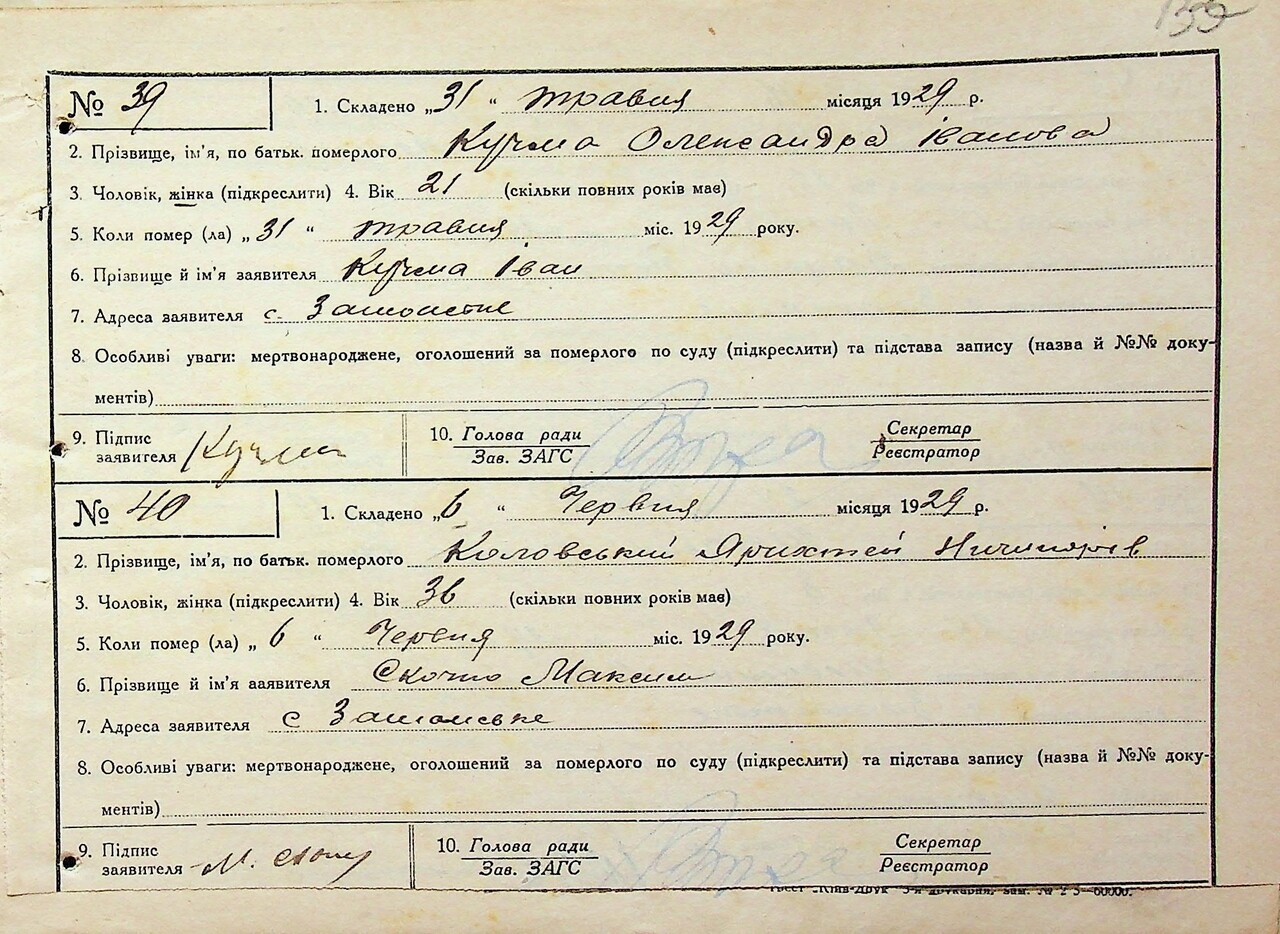 139
№ 39
1. Складено „31 “ травня місяця 1929 р.
2. Прізвище, ім'я, по батьк. померлого Кучма Олександра Іванова
3. Чоловік, жінка (підкреслити) 4. Вік 21 (скільки повних років має)
5. Коли помер (ла) „ 31 “ травня міс. 1929 року.
6. Прізвище й ім'я заявителя Кучма Іван
7. Адреса заявителя с.
8. Особливі уваги: мертвонароджене, оголошений за померлого по суду (підкреслити) та підстава запису (назва й №№ доку-
ментів)
9. Підпис заявителя Кучма
10. Голова ради
Зав. ЗАГС
Секретар
Реєстратор
№ 40
1. Складено „6 “ Червня місяця 1929 р.
2. Прізвище, ім'я, по батьк. померлого
3. Чоловік, жінка (підкреслити) 4. Вік 36 (скільки повних років має)
5. Коли помер (ла) „ 6 “ Червня міс. 1929 року.
6. Прізвище й ім'я ааявителя Максим
7. Адреса заявителя с
8. Особливі уваги: мертвонароджене, оголошений за померлого по суду (підкреслити) та підстава запису (назва й №№ доку-
ментів)
9. Підпис заявителя М.
10. Голова ради
Зав. ЗАГС
Секретар
Реєстратор